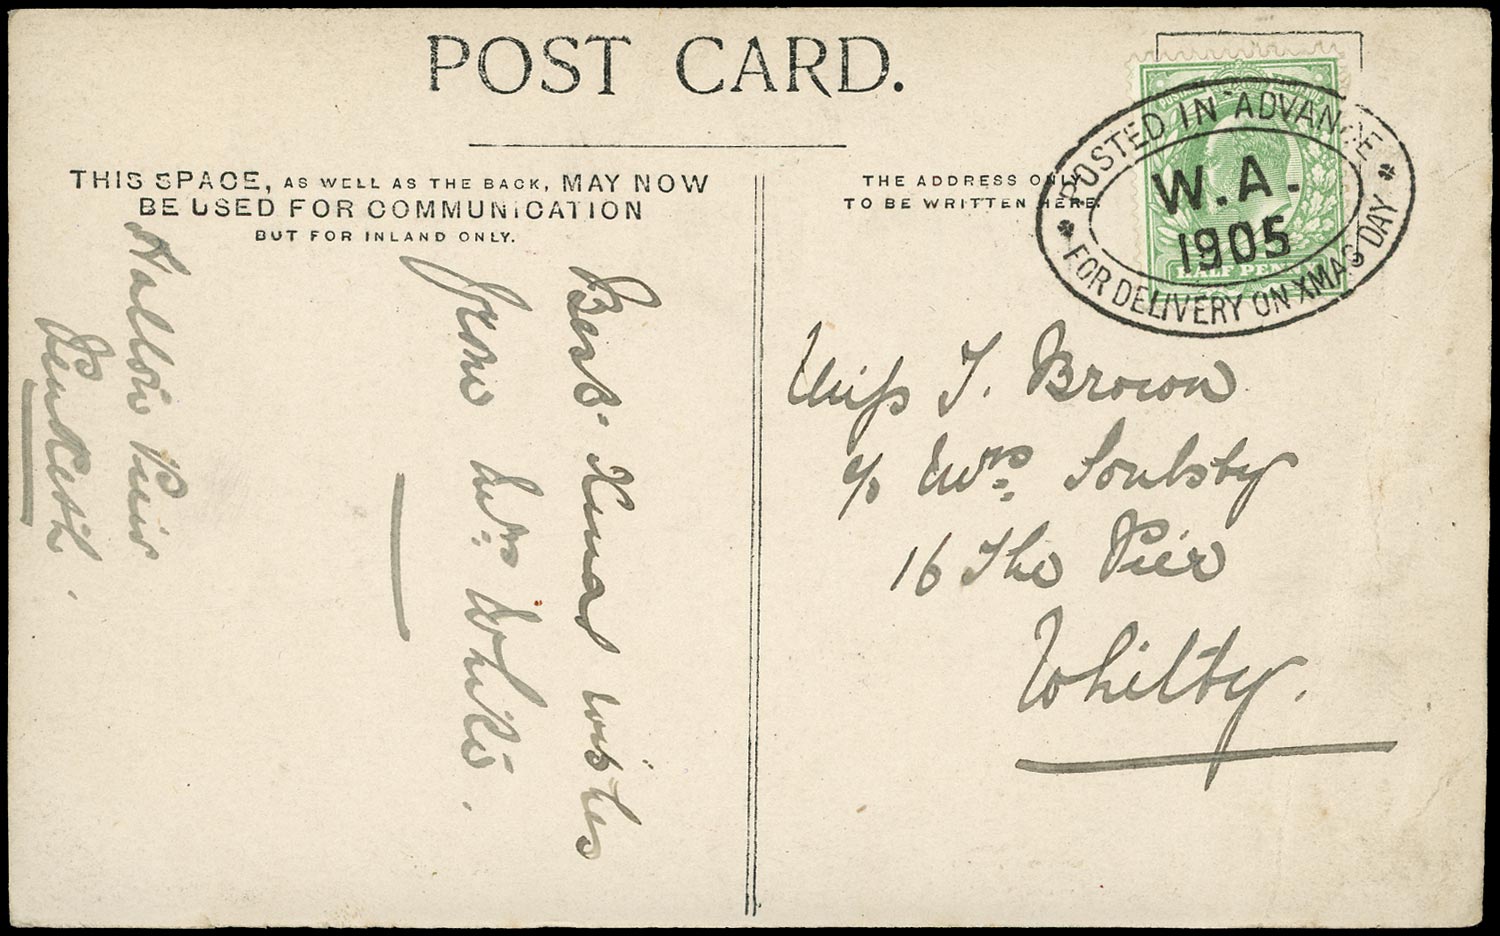 POST CARD.
THIS SPACE, AS WELL AS THE BACK, MAY NOW
BE USED FOR COMMUNICATION
BUT FOR INLAND ONLY.
THE ADDRESS ONLY
TO BE WRITTEN HERE.
POSTED IN ADVANCE
W.A.
1905
FOR DELIVERY ON XMAS DAY
HALF PENNY
Best Xmas wishes
from Mrs White.
Penketh.
Miss J. Brown
c/o Mrs Soulsby
16 The Pier
Whitby.